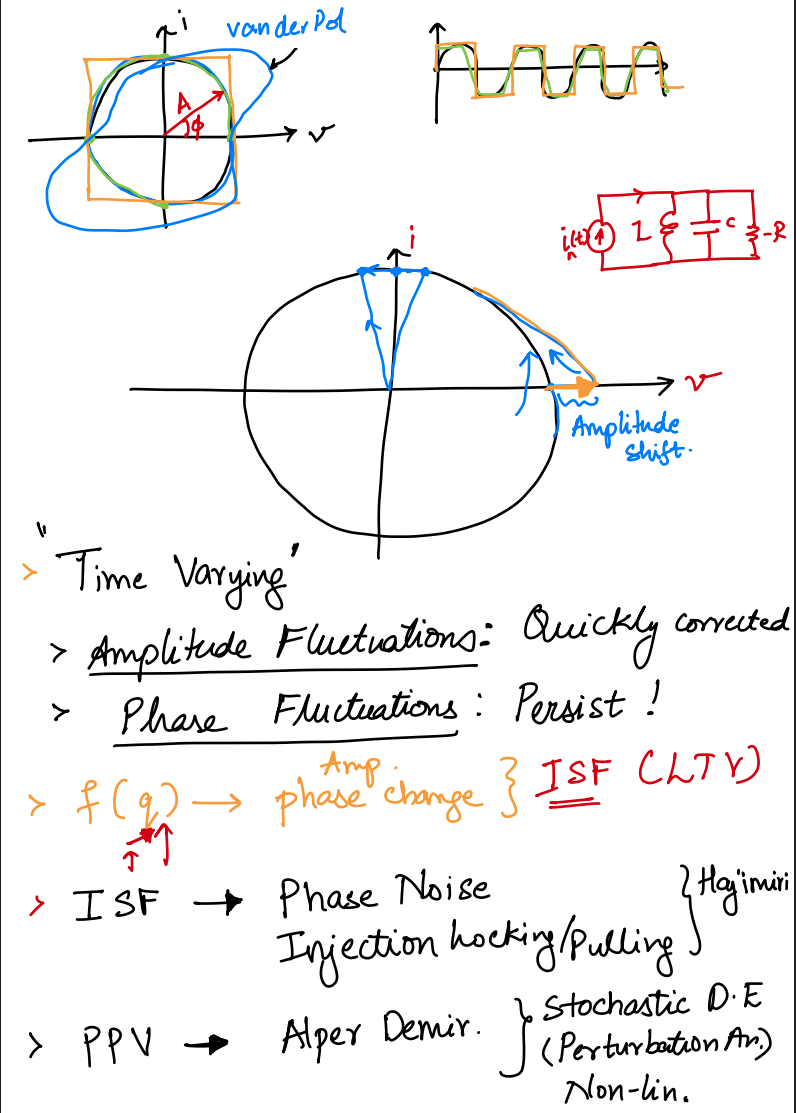 i
van der Pol
A
ϕ
v
i_n(t)
L
C
-R
i
v
Amplitude
shift.
> "Time Varying"
> Amplitude Fluctuations: Quickly corrected
> Phase Fluctuations: Persist!
Amp.
> f(q) → phase change } ISF (LTV)
> ISF → Phase Noise
Injection Locking/Pulling } Hajimiri
> PPV → Alper Demir. } Stochastic D.E
(Perturbation An.)
Non-lin.